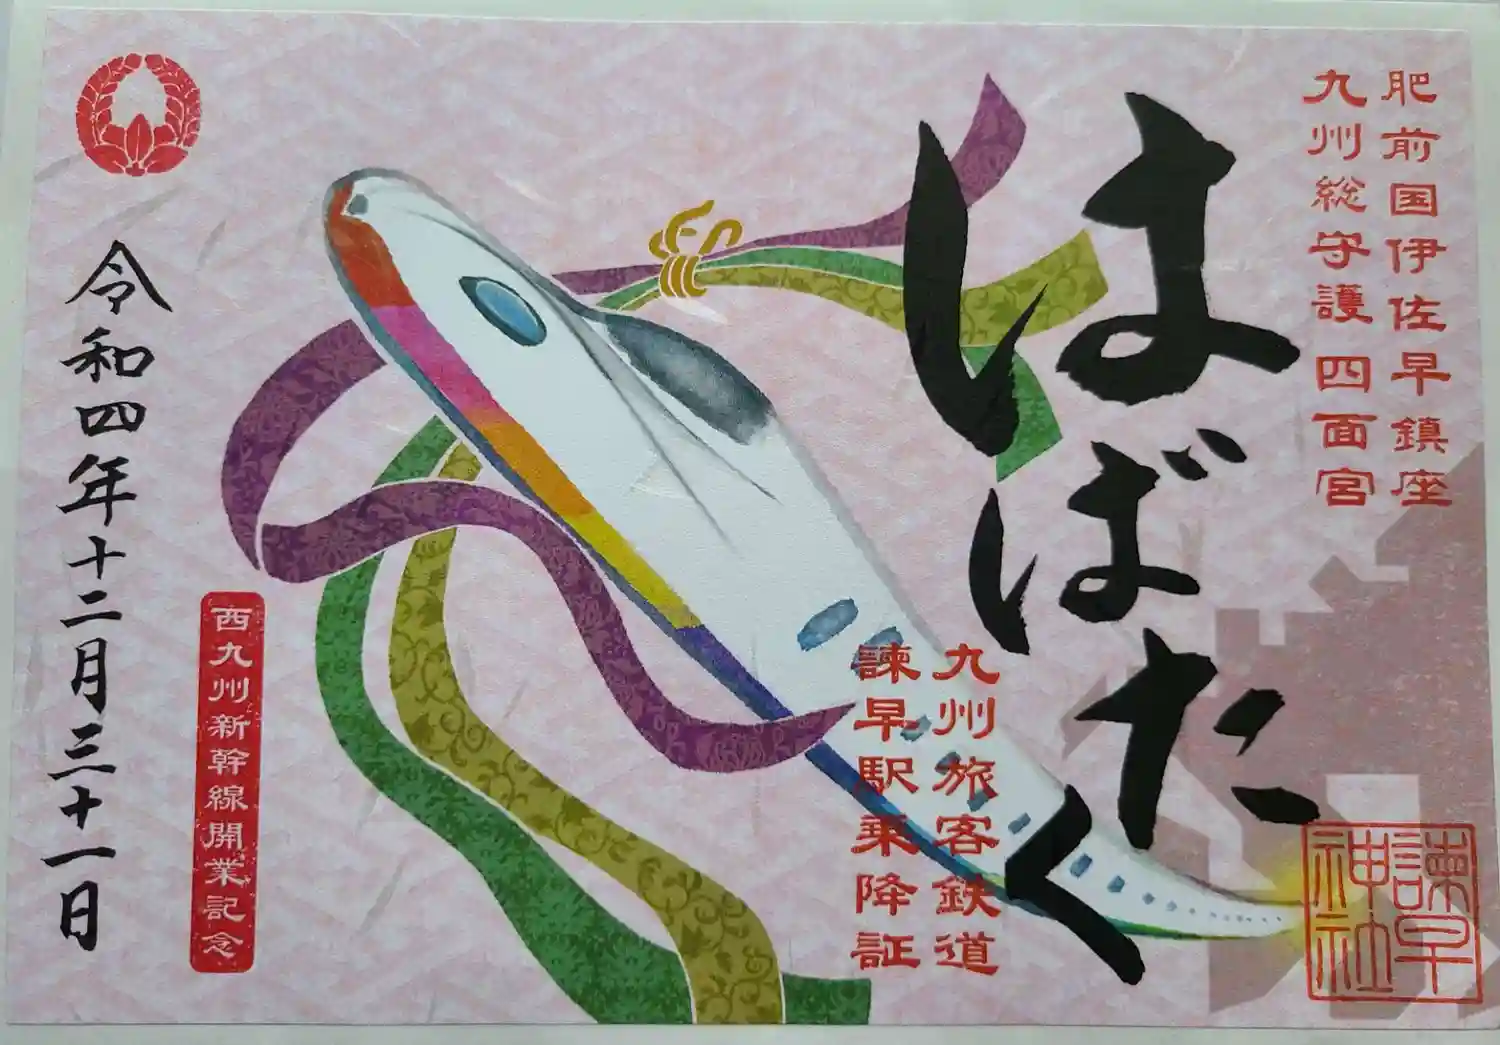 肥前国伊佐早鎮座
九州総守護 四面宮
はばたく
九州旅客鉄道
諫早駅乗降証
諫早
神社
西九州新幹線開業記念
令和四年十二月三十一日